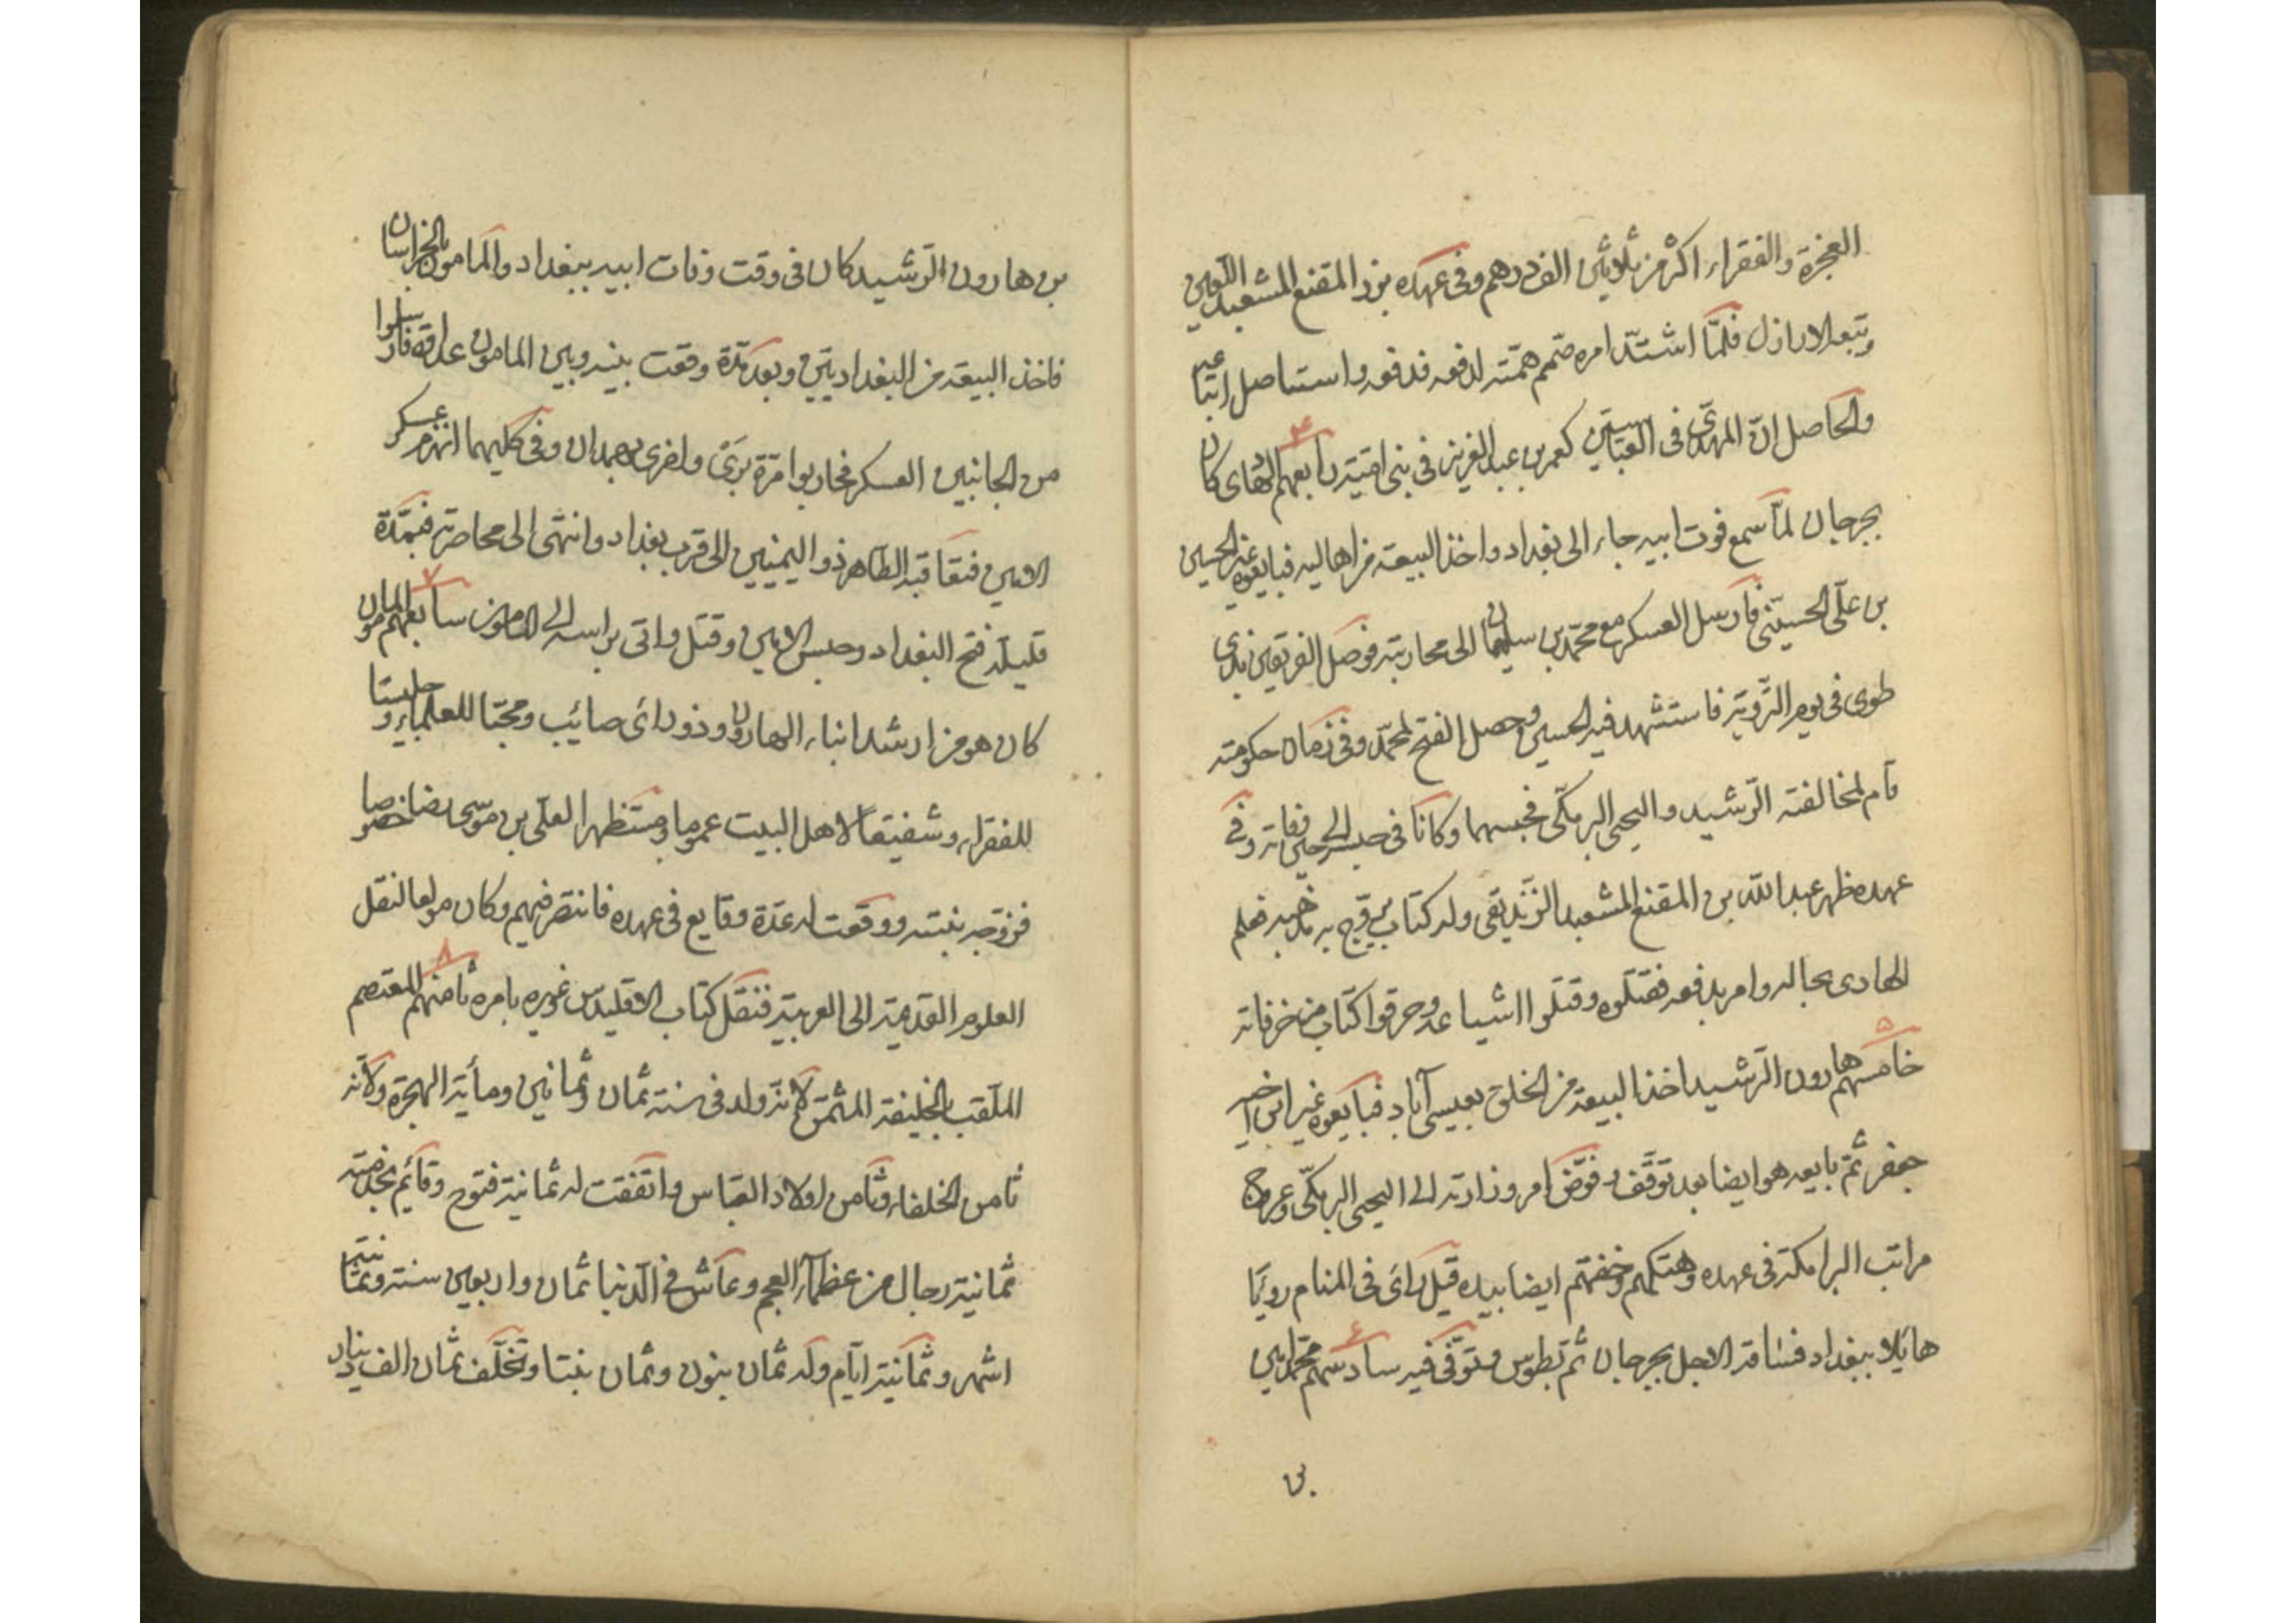 العجزة والفقراء اكثر من ثلاثين الف درهم وفى عهده برز المقنع المشعبد اللعين
وتبعه الاراذل فلمّا اشتدّ امره صمم همّته لدفعه فدفعه واستاصل اتباعه
والحاصل انّ المهدى فى العباسيين كعمر بن عبد العزيز فى بنى اميّة رابعهم الهادى كان
بجرجان لمّا سمع فوت ابيه جاء الى بغداد واخذ البيعة من اهاليه فبايعوه غير الحسين
بن علىّ الحسينى فارسل العسكر مع محمّد بن سليمان الى محاربته فوصل الفريقين بذى
طوى فى يوم التروية فاستشهد فيه الحسين وحصل الفتح لمحمّد وفى زمان حكومته
قام لمخالفته الرّشيد واليحيى البرمكّى فحبسهما وكانا فى حبسه الى حين وفاته وفى
عهده ظهر عبد اللّه بن المقنع المشعبد الزنديقى وله كتاب يروّج به مذهبه فعلم
الهادى بحاله وامر بدفعه فقتلوه وقتلوا اشياعه وحرقوا كتابه من خرفاته
۵
خامسهم هارون الرّشيد اخذ البيعة من الخلق بعيسى آباد فبايعوه غير ابن اخيه
جعفر ثمّ بايعه هو ايضا بعد توقّف وفوّض امر وزارته الى اليحيى البرمكّى وعروج
مراتب البرامكة فى عهده وهتكهم وخفتهم ايضا بيده قيل راى فى المنام رويًا
هايلا ببغداد فساقه الاجل بجرجان ثمّ بطوس فتوفّى فيه سادسهم محمّد امين
بن
بن هارون الرّشيد كان فى وقت وفات ابيه ببغداد والمامون بالخراسان
فاخذ البيعة من البغداديّين وبعد مدّة وقعت بينه وبين المامون عداوة فارسلوا
من الجانبين العسكر فحاربوا مرّة برىّ واخرى بهمدان وفى كليهما انهزم عسكر
الامين فتعاقبه الطاهر ذو اليمينين الى قرب بغداد وانتهى الى محاصرته فبمدّة
قليلة فتح البغداد وحبس الامين وقتل واتى براسه الى المامون سابعهم المامون
كان هو من ارشد ابناء الهارون وذو راى صائب ومحبّا للعلماء وجليسا
للفقراء وشفيقًا لاهل البيت عموما ومستظهرا لعلّى بن موسى رضا خصوصا
فزوّجه بنته ووقعت له عدّة وقايع فى عهده فانتصر فيهم وكان مولعا لنقل
العلوم القديمة الى العربية فنقل كتاب الاقليدس غيره بامره ثامنهم المعتصم
الملقب بالخليفة المثمّن لانّه ولد فى سنة ثمان وثمانين ومأية الهجرة ولانّه
ثامن الخلفاء وثامن اولاد العبّاس واتفقت له ثمانية فتوح وقائم بخدمته
ثمانية رجال من عظماء العجم وعاش فى الدنيا ثمان واربعين سنة وثمانية
اشهر وثمانية ايّام وله ثمان بنون وثمان بنتا وتخلّف ثمان الف دينار